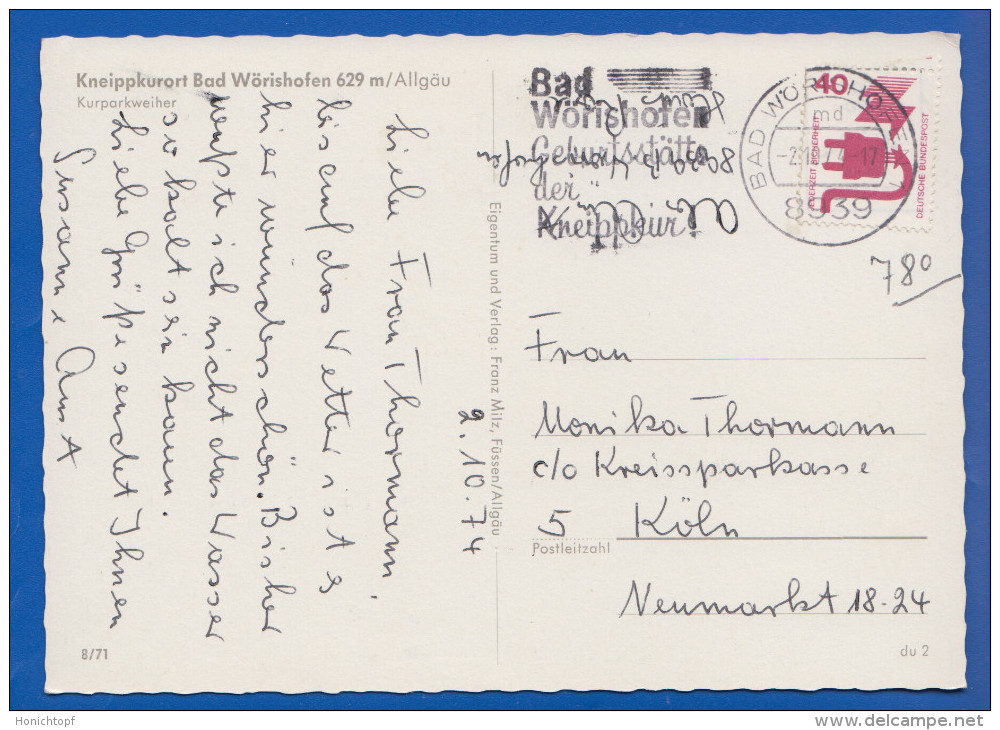 Kneippkurort Bad Wörishofen 629 m/Allgäu
Kurparkweiher
2.10.74
Liebe Frau Thormann,
bis auf das Wetter ist es
hier wunderschön. Bisher
wußte ich nicht das Wasser
so kalt sein kann.
Liebe Grüße sendet Ihnen
Susanne
8/71
Eigentum und Verlag: Franz Milz, Füssen/Allgäu
Bad
Wörishofen
Geburtsstätte
der
Kneippkur
8939 Wörishofen
BAD WÖRISHOFEN 1
md
8939
40
JEDERZEIT SICHERHEIT
DEUTSCHE BUNDESPOST
780
Frau
Monika Thormann
c/o Kreissparkasse
5 Köln
Postleitzahl
Neumarkt 18-24
du 2
Honichtopf
delcampe.net